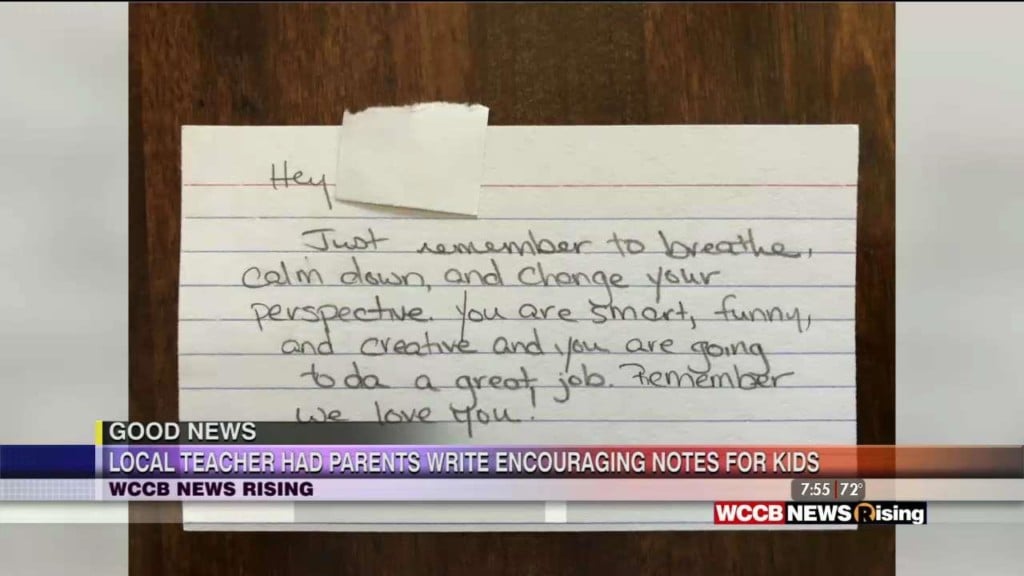 Hey
Just remember to breathe,
calm down, and change your
perspective. You are smart, funny,
and creative and you are going
to do a great job. Remember
we love you!
GOOD NEWS
LOCAL TEACHER HAD PARENTS WRITE ENCOURAGING NOTES FOR KIDS
WCCB NEWS RISING
7:55 72°
WCCB NEWS Rising